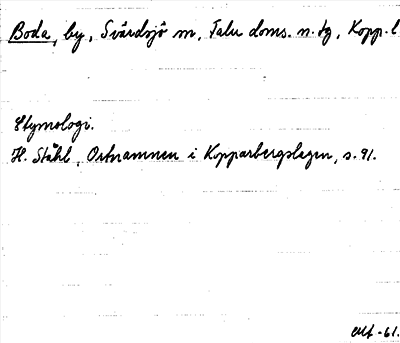 Boda, by, Svärdsjö sn, Falu doms. n. tg, Kopp. l
Etymologi.
H. Ståhl, Ortnamnen i Kopparbergslagen, s. 91.
-61.